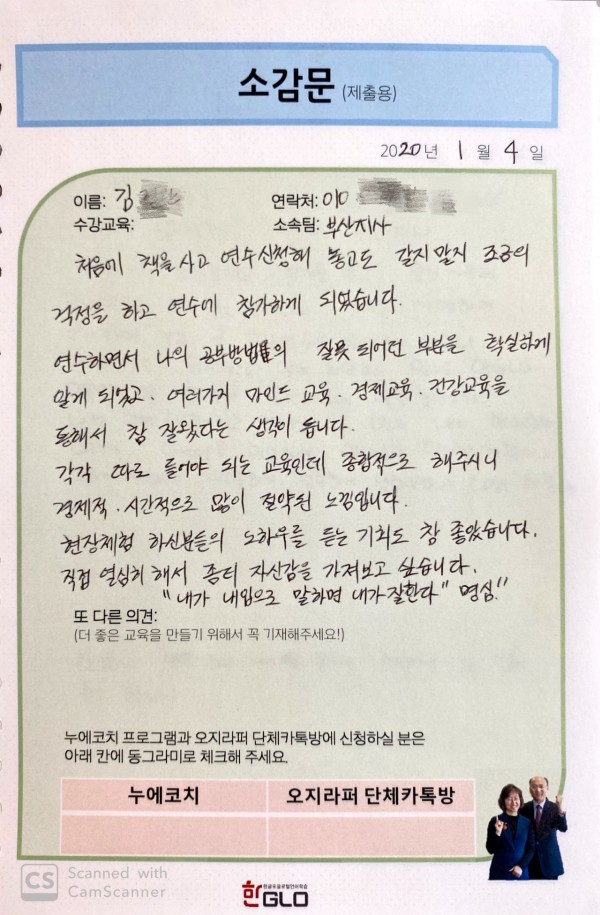 소감문 (제출용)
2020년 1월 4일
이름: 김
연락처: 010
수강교육:
소속팀: 부산지사
처음에 책을 사고 연수신청해 놓고도 갈지말지 조금의
걱정을 하고 연수에 참가하게 되었습니다.
연수하면서 나의 공부방법의 잘못 되어런 부분을 확실하게
알게 되었고. 여러가지 마인드 교육. 경제교육. 건강교육을
통해서 참 잘왔다는 생각이 듭니다.
각각 따로 들어야 되는 교육인데 종합적으로 해주시니
경제적.시간적으로 많이 절약된 느낌입니다.
현장체험 하신분들의 노하우를 듣는 기회도 참 좋았습니다.
직접 열심히 해서 좀더 자신감을 가져보고 싶습니다.
"내가 내입으로 말하면 내가 잘한다" 명심!!
또 다른 의견:
(더 좋은 교육을 만들기 위해서 꼭 기재해주세요!)
누에코치 프로그램과 오지라퍼 단체카톡방에 신청하실 분은
아래 칸에 동그라미로 체크해 주세요.
누에코치
오지라퍼 단체카톡방
CS Scanned with
CamScanner
한글유글로벌언어학습
한GLO